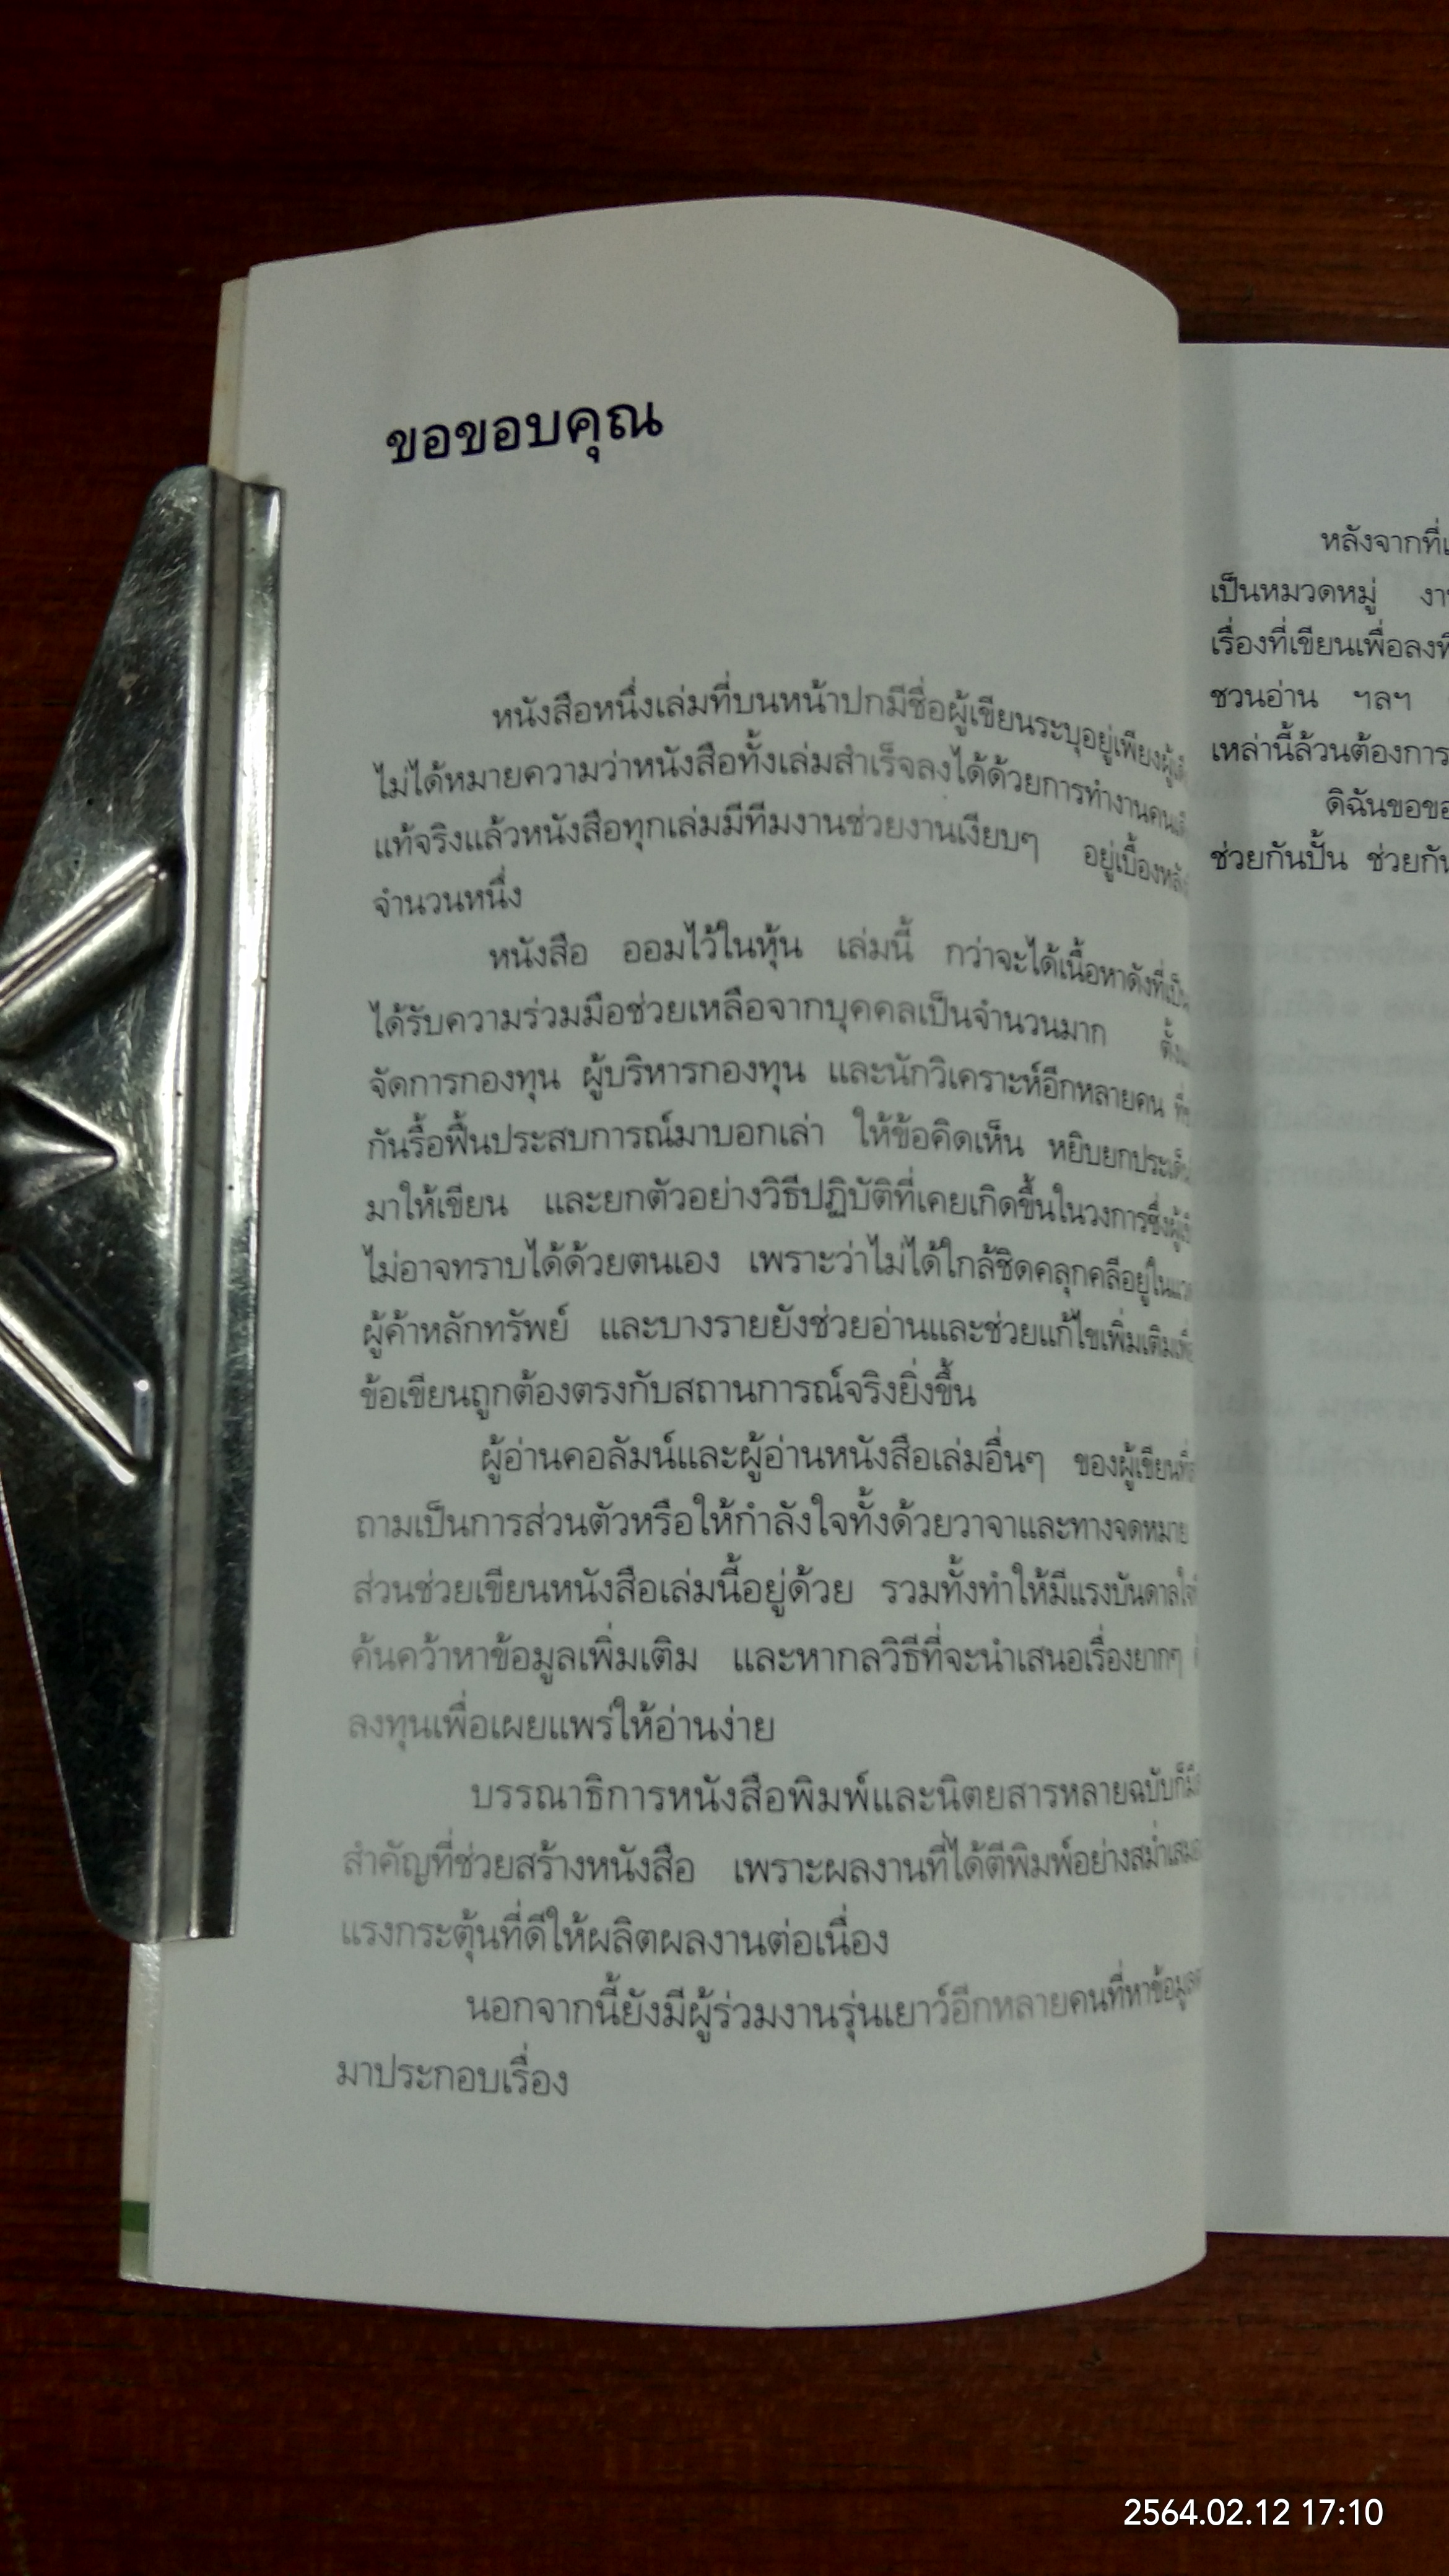 ขอขอบคุณ
หนังสือหนึ่งเล่มที่บนหน้าปกมีชื่อผู้เขียนระบุอยู่เพียง
ไม่ได้หมายความว่าหนังสือทั้งเล่มสำเร็จลงได้ด้วยการทำงาน
แท้จริงแล้วหนังสือทุกเล่มมีทีมงานช่วยงานเงียบๆ อยู่เบื้อง
จำนวนหนึ่ง
หนังสือ ออมไว้ในหุ้น เล่มนี้ กว่าจะได้เนื้อหาดังที่
ได้รับความร่วมมือช่วยเหลือจากบุคคลเป็นจำนวนมาก
จัดการกองทุน ผู้บริหารกองทุน และนักวิเคราะห์อีกหลายคน
กันรื้อฟื้นประสบการณ์มาบอกเล่า ให้ข้อคิดเห็น หยิบยกประเด็น
มาให้เขียน และยกตัวอย่างวิธีปฏิบัติที่เคยเกิดขึ้นในวงการซึ่ง
ไม่อาจทราบได้ด้วยตนเอง เพราะว่าไม่ได้ใกล้ชิดคลุกคลีอยู่ใน
ผู้ค้าหลักทรัพย์ และบางรายยังช่วยอ่านและช่วยแก้ไขเพิ่มเติม
ข้อเขียนถูกต้องตรงกับสถานการณ์จริงยิ่งขึ้น
ผู้อ่านคอลัมน์และผู้อ่านหนังสือเล่มอื่นๆ ของผู้เขียน
ถามเป็นการส่วนตัวหรือให้กำลังใจทั้งด้วยวาจาและทางจดหมาย
ส่วนช่วยเขียนหนังสือเล่มนี้อยู่ด้วย รวมทั้งทำให้มีแรงบันดาลใจ
ค้นคว้าหาข้อมูลเพิ่มเติม และหากลวิธีที่จะนำเสนอเรื่องยากๆ
ลงทุนเพื่อเผยแพร่ให้อ่านง่าย
บรรณาธิการหนังสือพิมพ์และนิตยสารหลายฉบับก็
สำคัญที่ช่วยสร้างหนังสือ เพราะผลงานที่ได้ตีพิมพ์อย่างสม่ำเสมอ
แรงกระตุ้นที่ดีให้ผลิตผลงานต่อเนื่อง
นอกจากนี้ยังมีผู้ร่วมงานรุ่นเยาว์อีกหลายคนที่หาข้อมูล
มาประกอบเรื่อง
หลังจากที่
เป็นหมวดหมู่
เรื่องที่เขียนเพื่อลง
ชวนอ่าน ฯลฯ
เหล่านี้ล้วนต้องการ
ดิฉันขอ
ช่วยกันปั้น ช่วยกัน
2564.02.12 17:10